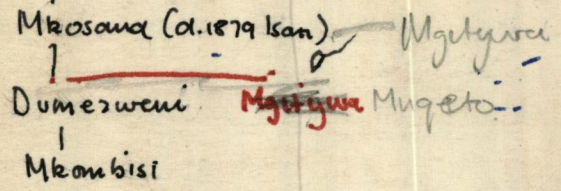 Mkosana (d. 1879 Isan) Mgitywa
Dumezweni Mgitywa Muqeto
Mkombisi